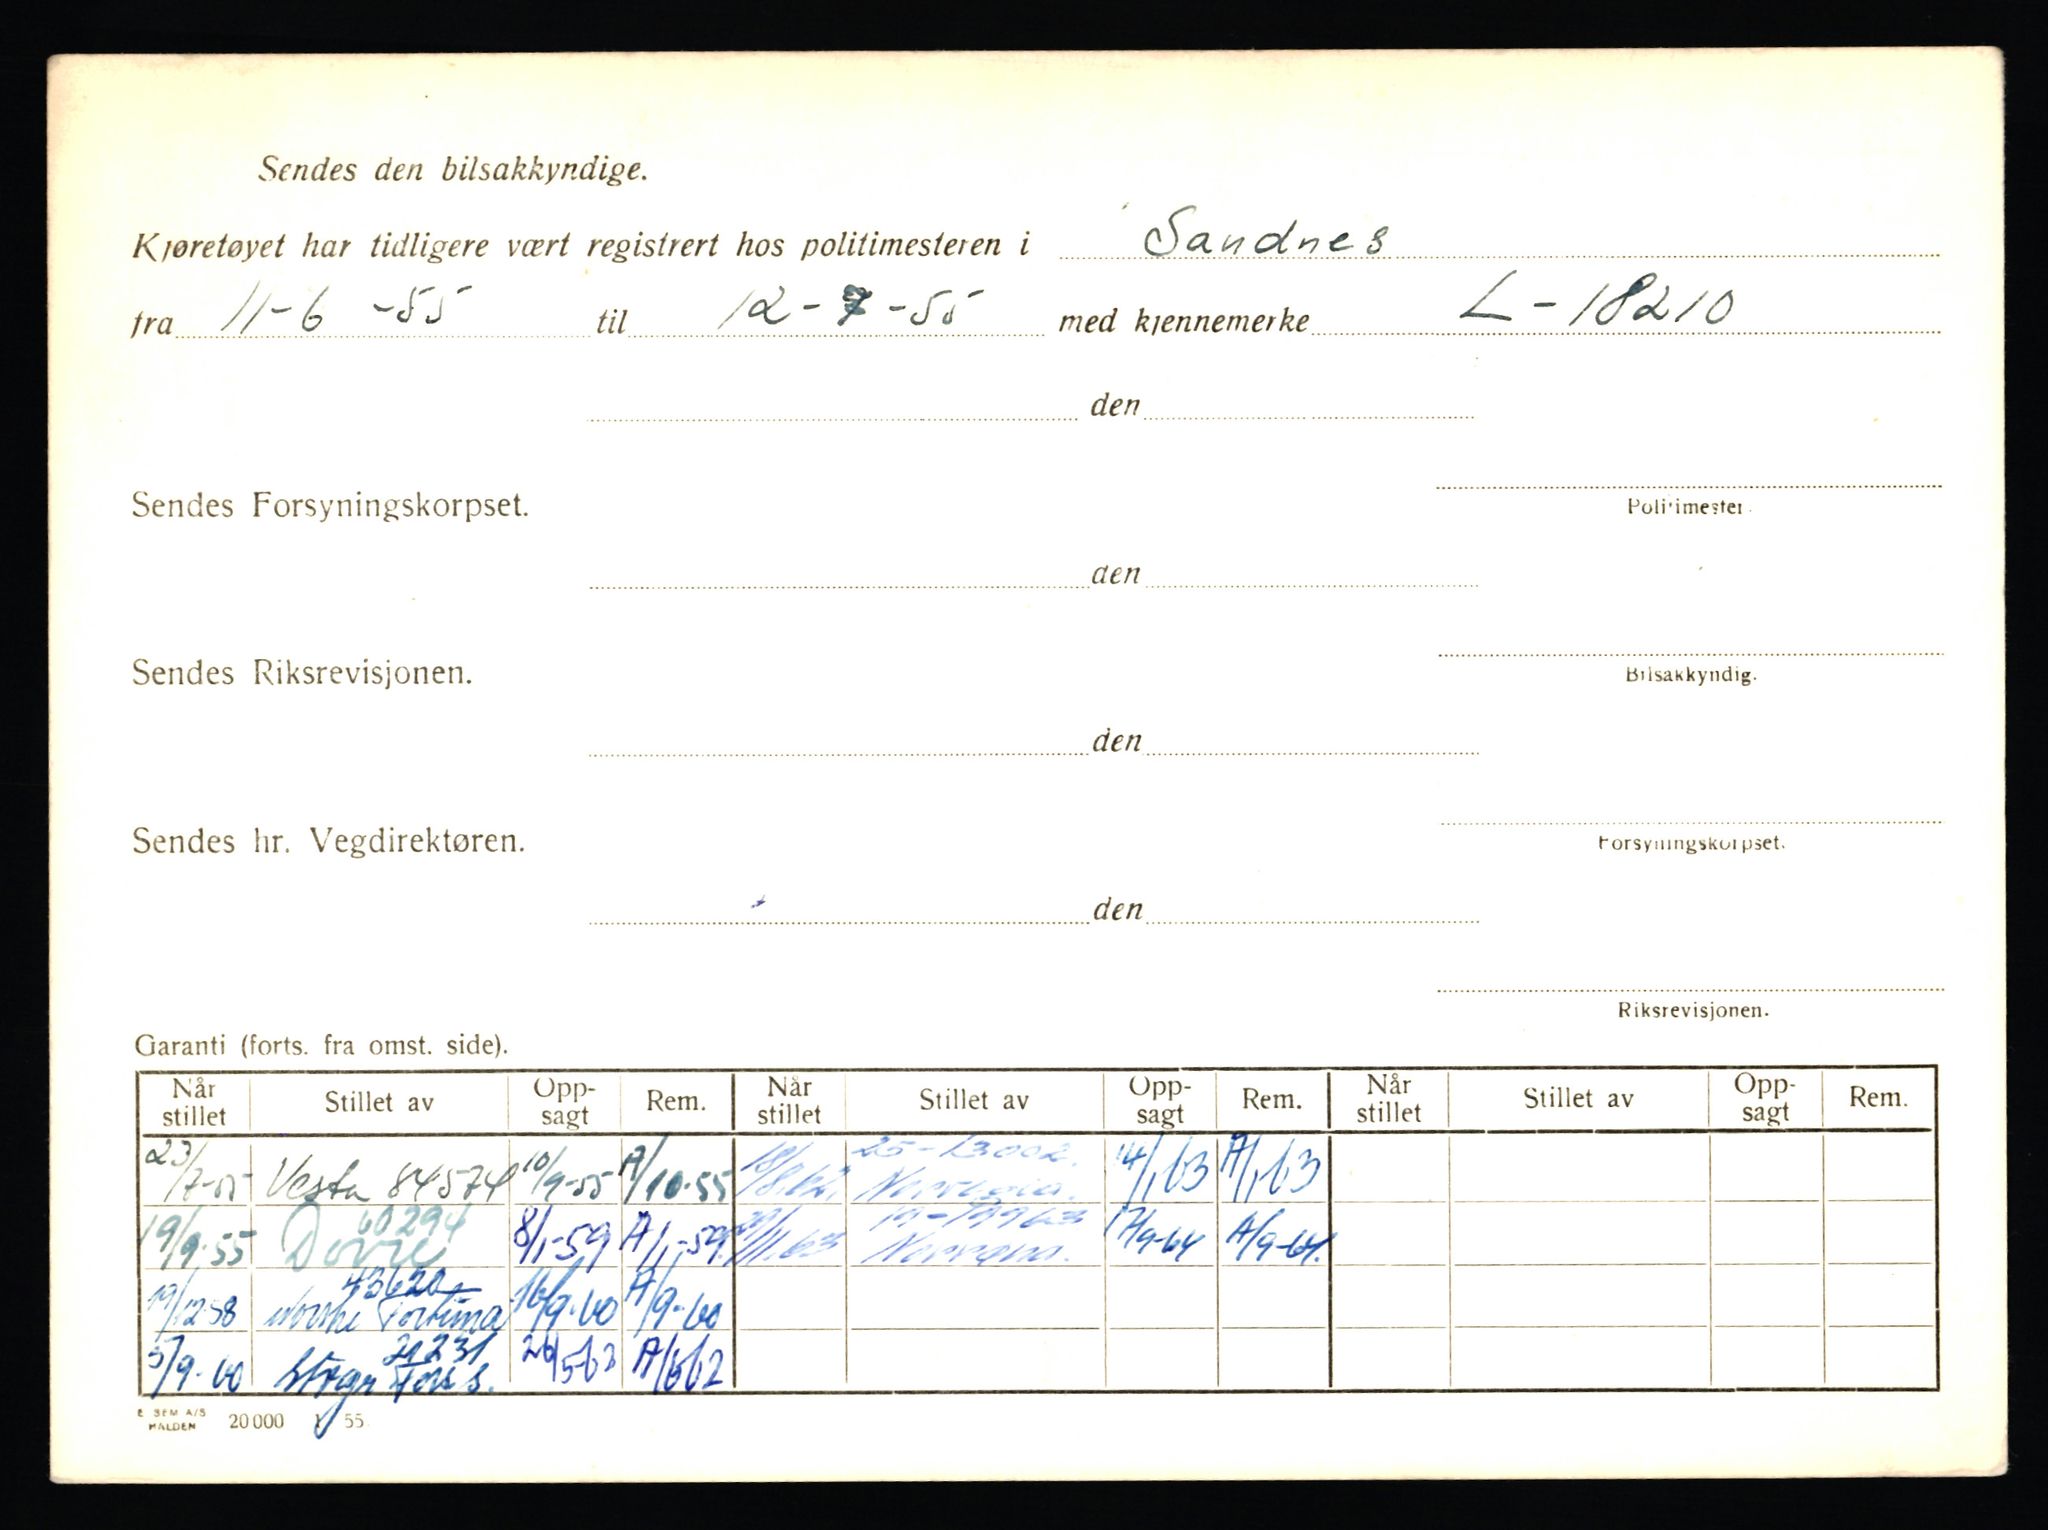 Sendes den bilsakkyndige.
Kjøretøyet har tidligere vært registrert hos politimesteren i Sandnes
fra 11-6-55 til 12-7-55 med kjennemerke L-18210
den
Sendes Forsyningskorpset.
Politimester.
den
Sendes Riksrevisjonen.
Bilsakkyndig.
den
Sendes hr. Vegdirektøren.
Forsyningskorpset.
den
Riksrevisjonen.
Garanti (forts. fra omst. side).
Når stillet Stillet av Opp-sagt Rem. Når stillet Stillet av Opp-sagt Rem. Når stillet Stillet av Opp-sagt Rem.
23/7-55 Vesta 84574 10/9-55 A/10-55 18/8.62. 25-13002. Norvegia. 14/1,63 A/1,63
19/9-55 Dovre 60294 8/1-59 A/1,-59. 11.63 19-19963 17/9-64 A/9-64.
19/12-58 Norske Fortuna 43620 16/9-60 A/9-60
/9-60 21231 26/5-62 A/662
E. SEM A/S HALDEN 20000 55